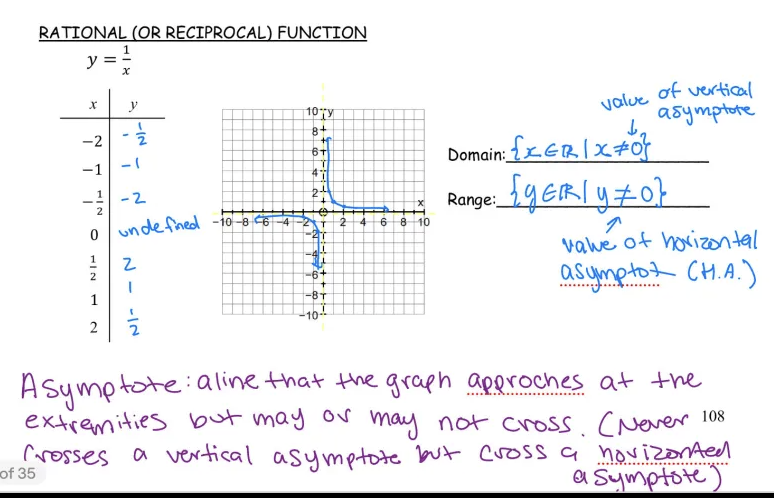 RATIONAL (OR RECIPROCAL) FUNCTION
y = 1/x
x y
−2 -1/2
−1 -1
−1/2 -2
0 undefined
1/2 2
1 1
2 1/2
y
10
8
6
4
2
x
−10 −8 −6 −4 −2 2 4 6 8 10
−2
−4
−6
−8
−10
value of vertical
asymptote
Domain: {x∈R | x≠0}
Range: {y∈R | y≠0}
value of horizontal
asymptot (H.A.)
Asymptote: a line that the graph approches at the
extremities but may or may not cross. (Never
108
Crosses a vertical asymptote but cross a horizonted
asymptote)
of 35